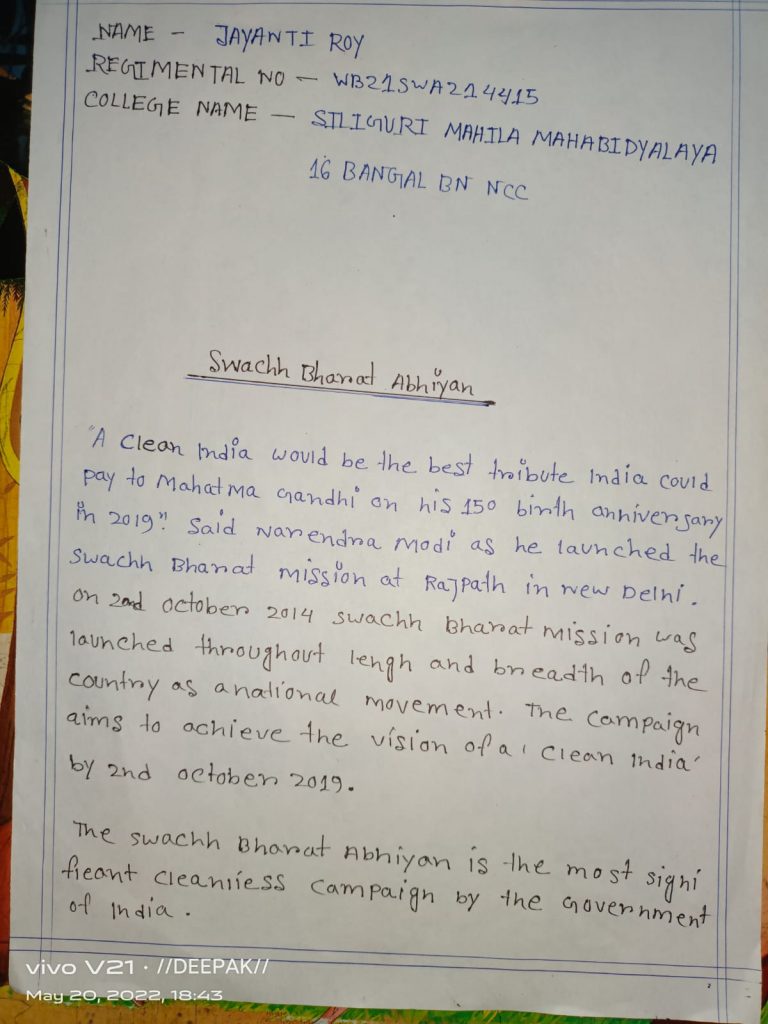 NAME - JAYANTI ROY
REGIMENTAL NO - WB21SWA214415
COLLEGE NAME - SILIGURI MAHILA MAHABIDYALAYA
16 BANGAL BN NCC
Swachh Bharat Abhiyan
"A Clean India would be the best tribute India could
pay to Mahatma Gandhi on his 150 birth anniversary
in 2019". Said Narendra Modi as he launched the
Swachh Bharat mission at Rajpath in New Delhi.
on 2nd october 2014 swachh Bharat mission was
launched throughout lengh and breadth of the
country as a national movement. The campaign
aims to achieve the vision of a 'Clean India'
by 2nd october 2019.
The swachh Bharat Abhiyan is the most signi
ficant cleanliess campaign by the Government
of India.
vivo V21 · //DEEPAK//
May 20, 2022, 18:43